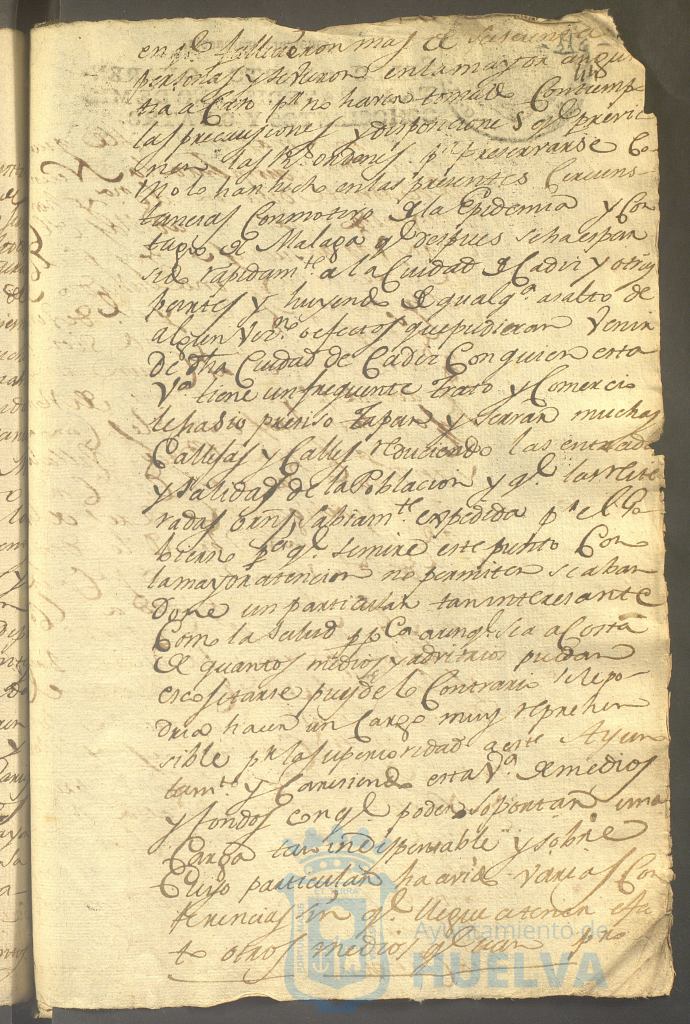 314
en q.e fallecieron mas de seiscientas
personas y se vieron en la mayor angus
tia a Caso p.r no haver tomado Con tiemp
las precausiones y disposiciones q.e previe
nen las R.s ordenes p.a preservarse Co
mo lo han hecho en las presentes Circuns
tancias Con motivo de la Epidemia y Con
tagio de Malaga q.e despues se ha espar
sido rapidam.te a la Ciudad de Cadiz y otras
partes y huyendo de qualq.a asalto de
algun Vez.no o efectos que pudieran Venir
de dha Ciudad de Cadiz Con quien esta
V.a tiene un frequente trato y Comercio
le ha sido preciso tapar y serrar muchas
Callejas y Calles reduciendo las entradas
y Salidas de la Poblacion y q.e las reite
radas orn.s sabiam.te expedidas p.r el Go
bierno para q.e se mire este punto Con
la mayor atencion no permiten se aban
done un particular tan interesante
Como la salud pp.ca aunq.e sea a Costa
de quantos medios y advitrios puedan
escositarse pues de lo Contrario se le po-
dria hacer un Cargo muy reprehen
sible p.r la superioridad a este Ayun
tam.to y Caresiendo esta V.a de medios
y fondos con q.e poder soportar una
Carga tan indispensable y sobre
Cuyo particular ha avido varias Con
ferencias sin q.e llegue a tener efec
to otros medios q.e
Ayuntamiento de
HUELVA